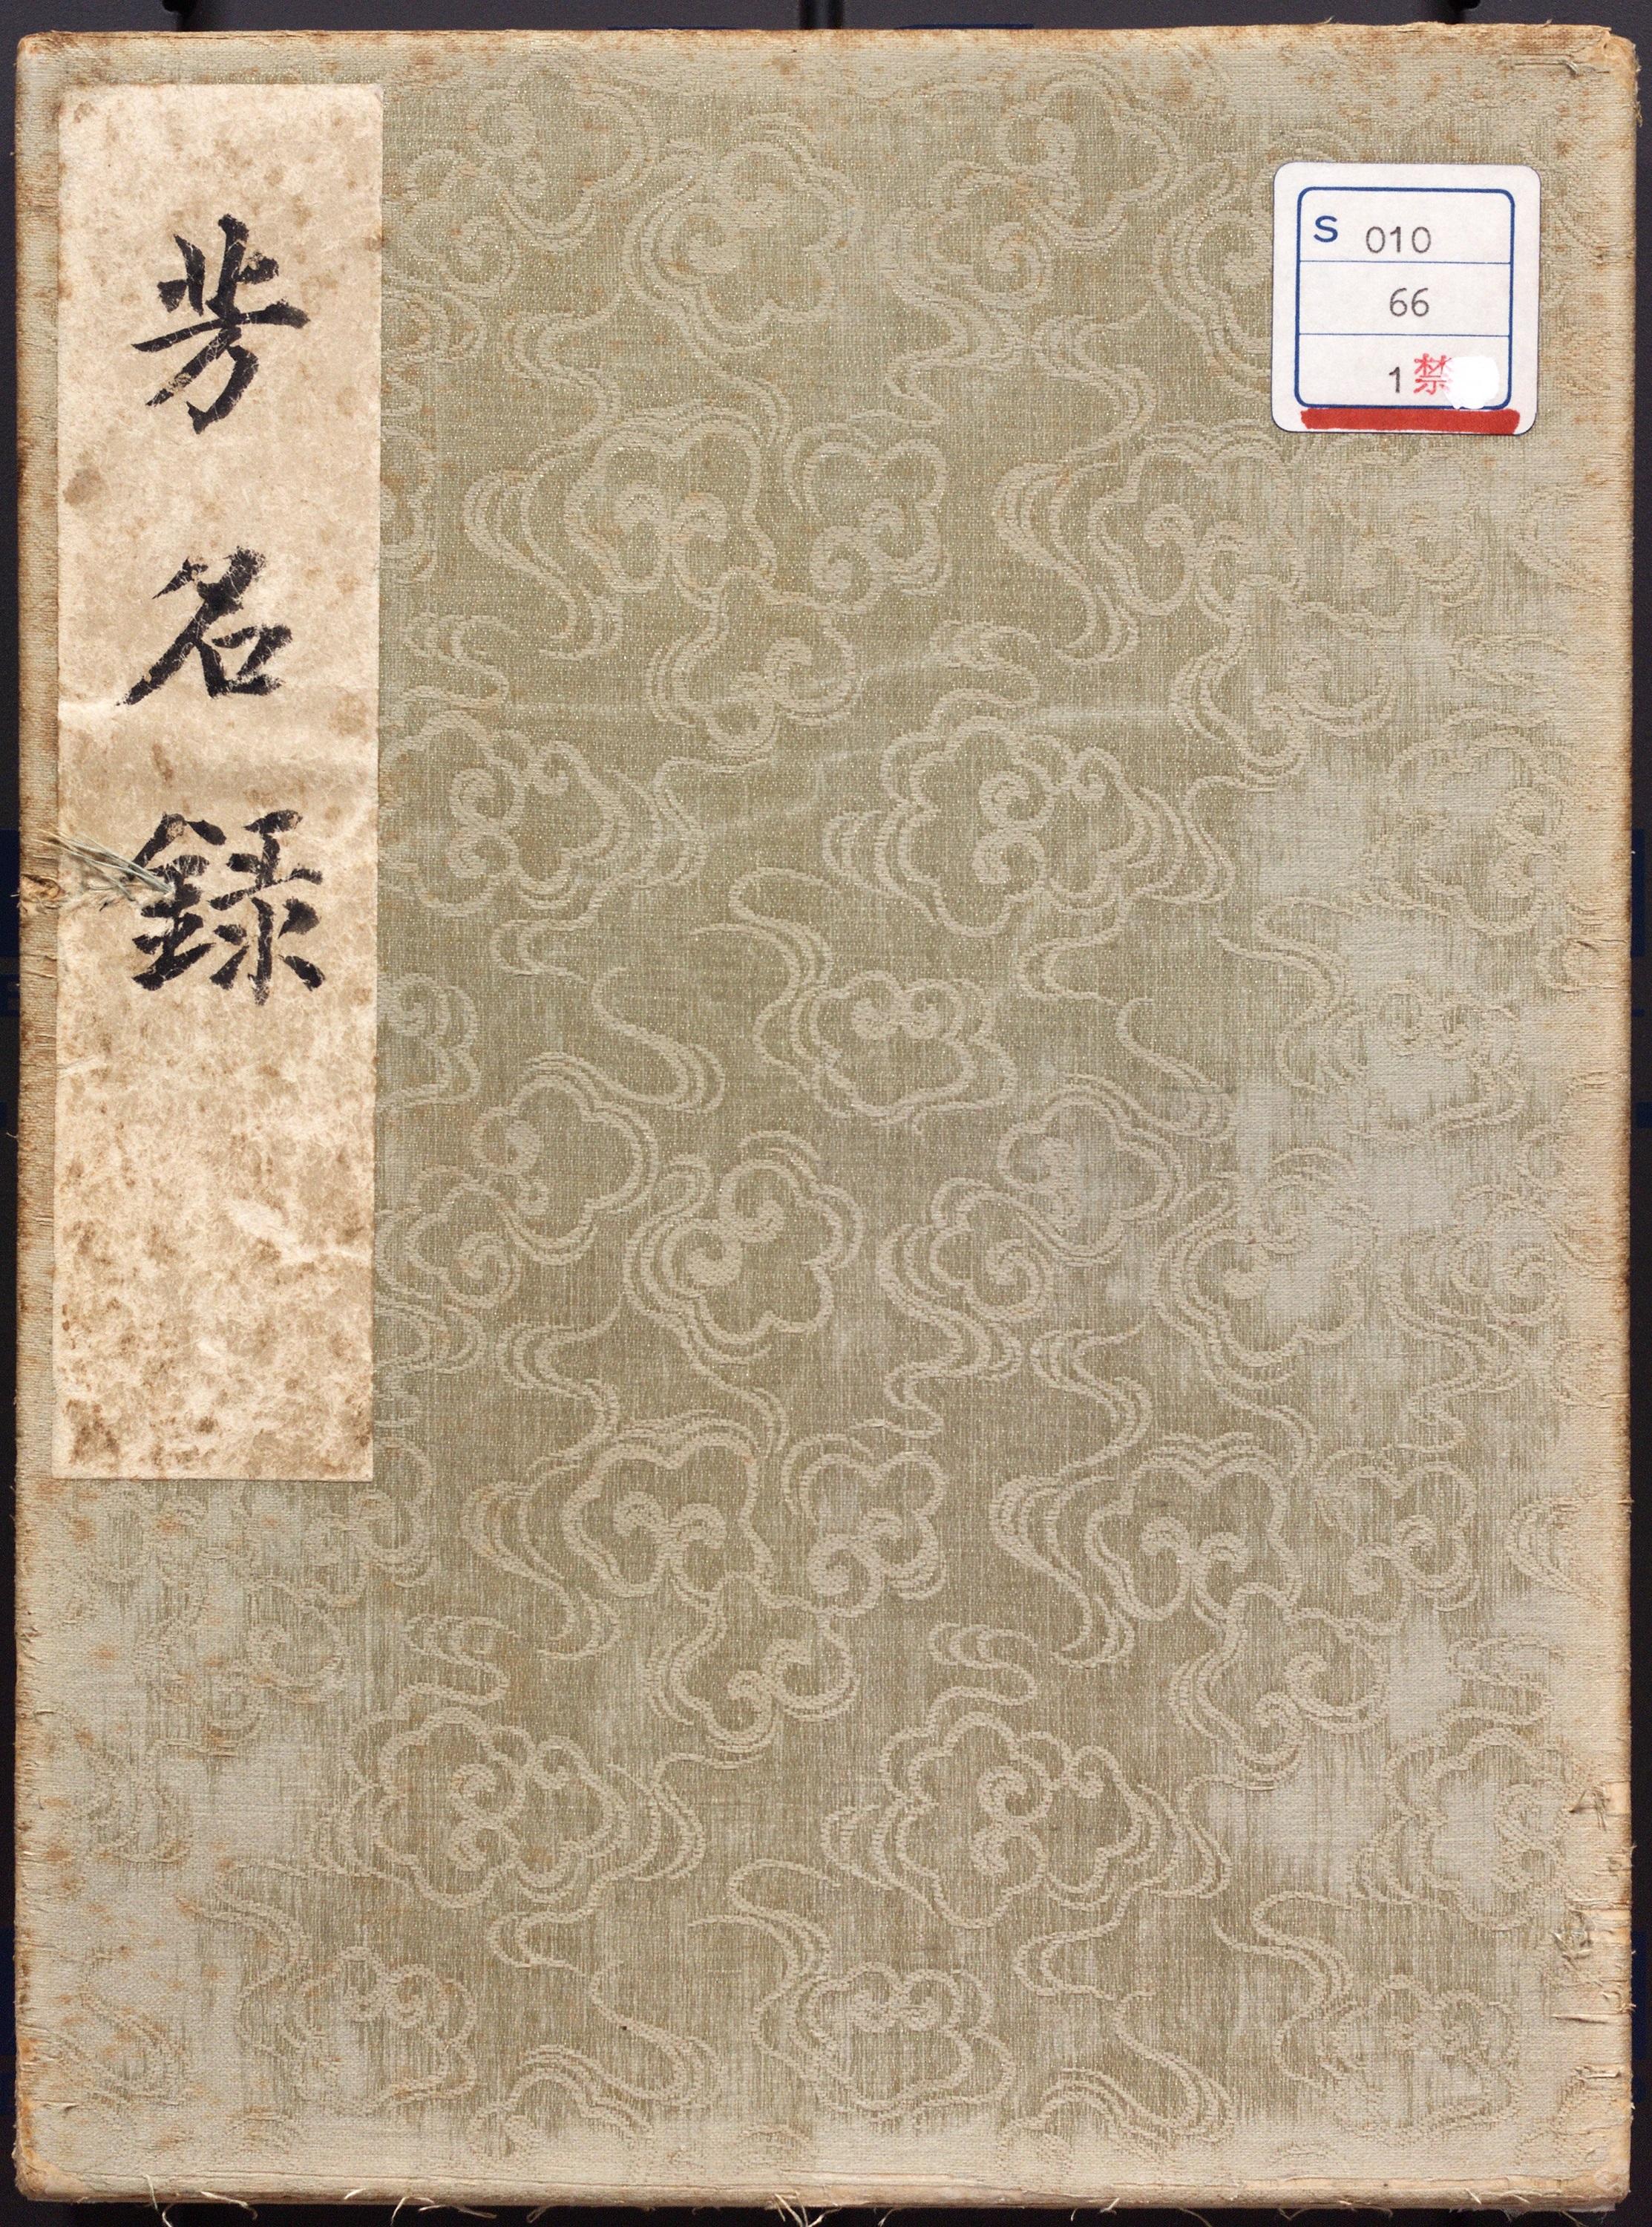 芳名録
S 010
66
1禁